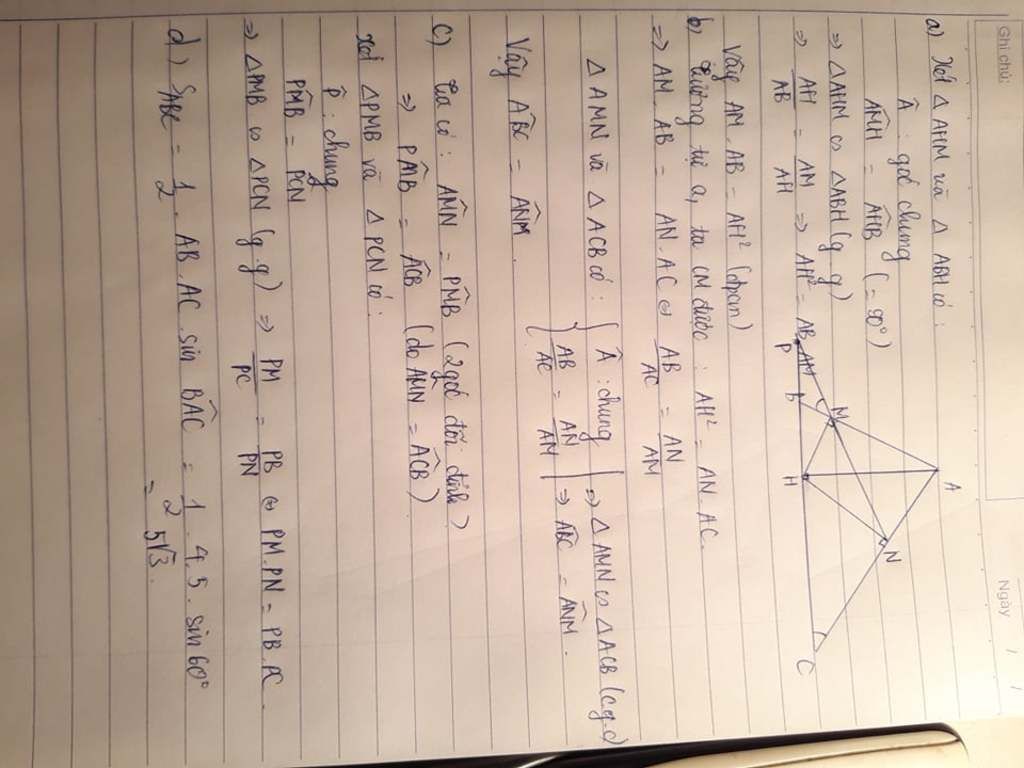 Ghi chú:
Ngày / /
a) Xét △ AHM và △ ABH có:
Â : góc chung
AM̂H = AĤB (= 90°)
⇒ △AHM ∽ △ABH (g.g)
⇒ AH/AB = AM/AH ⇒ AH² = AB.AM
Vậy AM.AB = AH² (đpcm)
b) Tương tự a, ta CM được : AH² = AN.AC.
⇒ AM.AB = AN.AC ⇔ AB/AC = AN/AM
△ AMN và △ ACB có : { Â : chung
AB/AC = AN/AM
⇒ △ AMN ∽ △ACB (c.g.c)
⇒ AB̂C = AN̂M.
Vậy AB̂C = AN̂M.
c) Ta có : AM̂N = PM̂B (2 góc đối đỉnh)
⇒ PM̂B = AĈB (do AM̂N = AĈB)
Xét △PMB và △ PCN có:
P̂ : chung
PM̂B = PĈN
⇒ △PMB ∽ △PCN (g.g) ⇒ PM/PC = PB/PN ⇔ PM.PN = PB.PC
d) S_ABC = 1/2 . AB.AC.sin BÂC = 1/2 .4.5. sin60°
= 5√3.
A
M
N
P
B
H
C